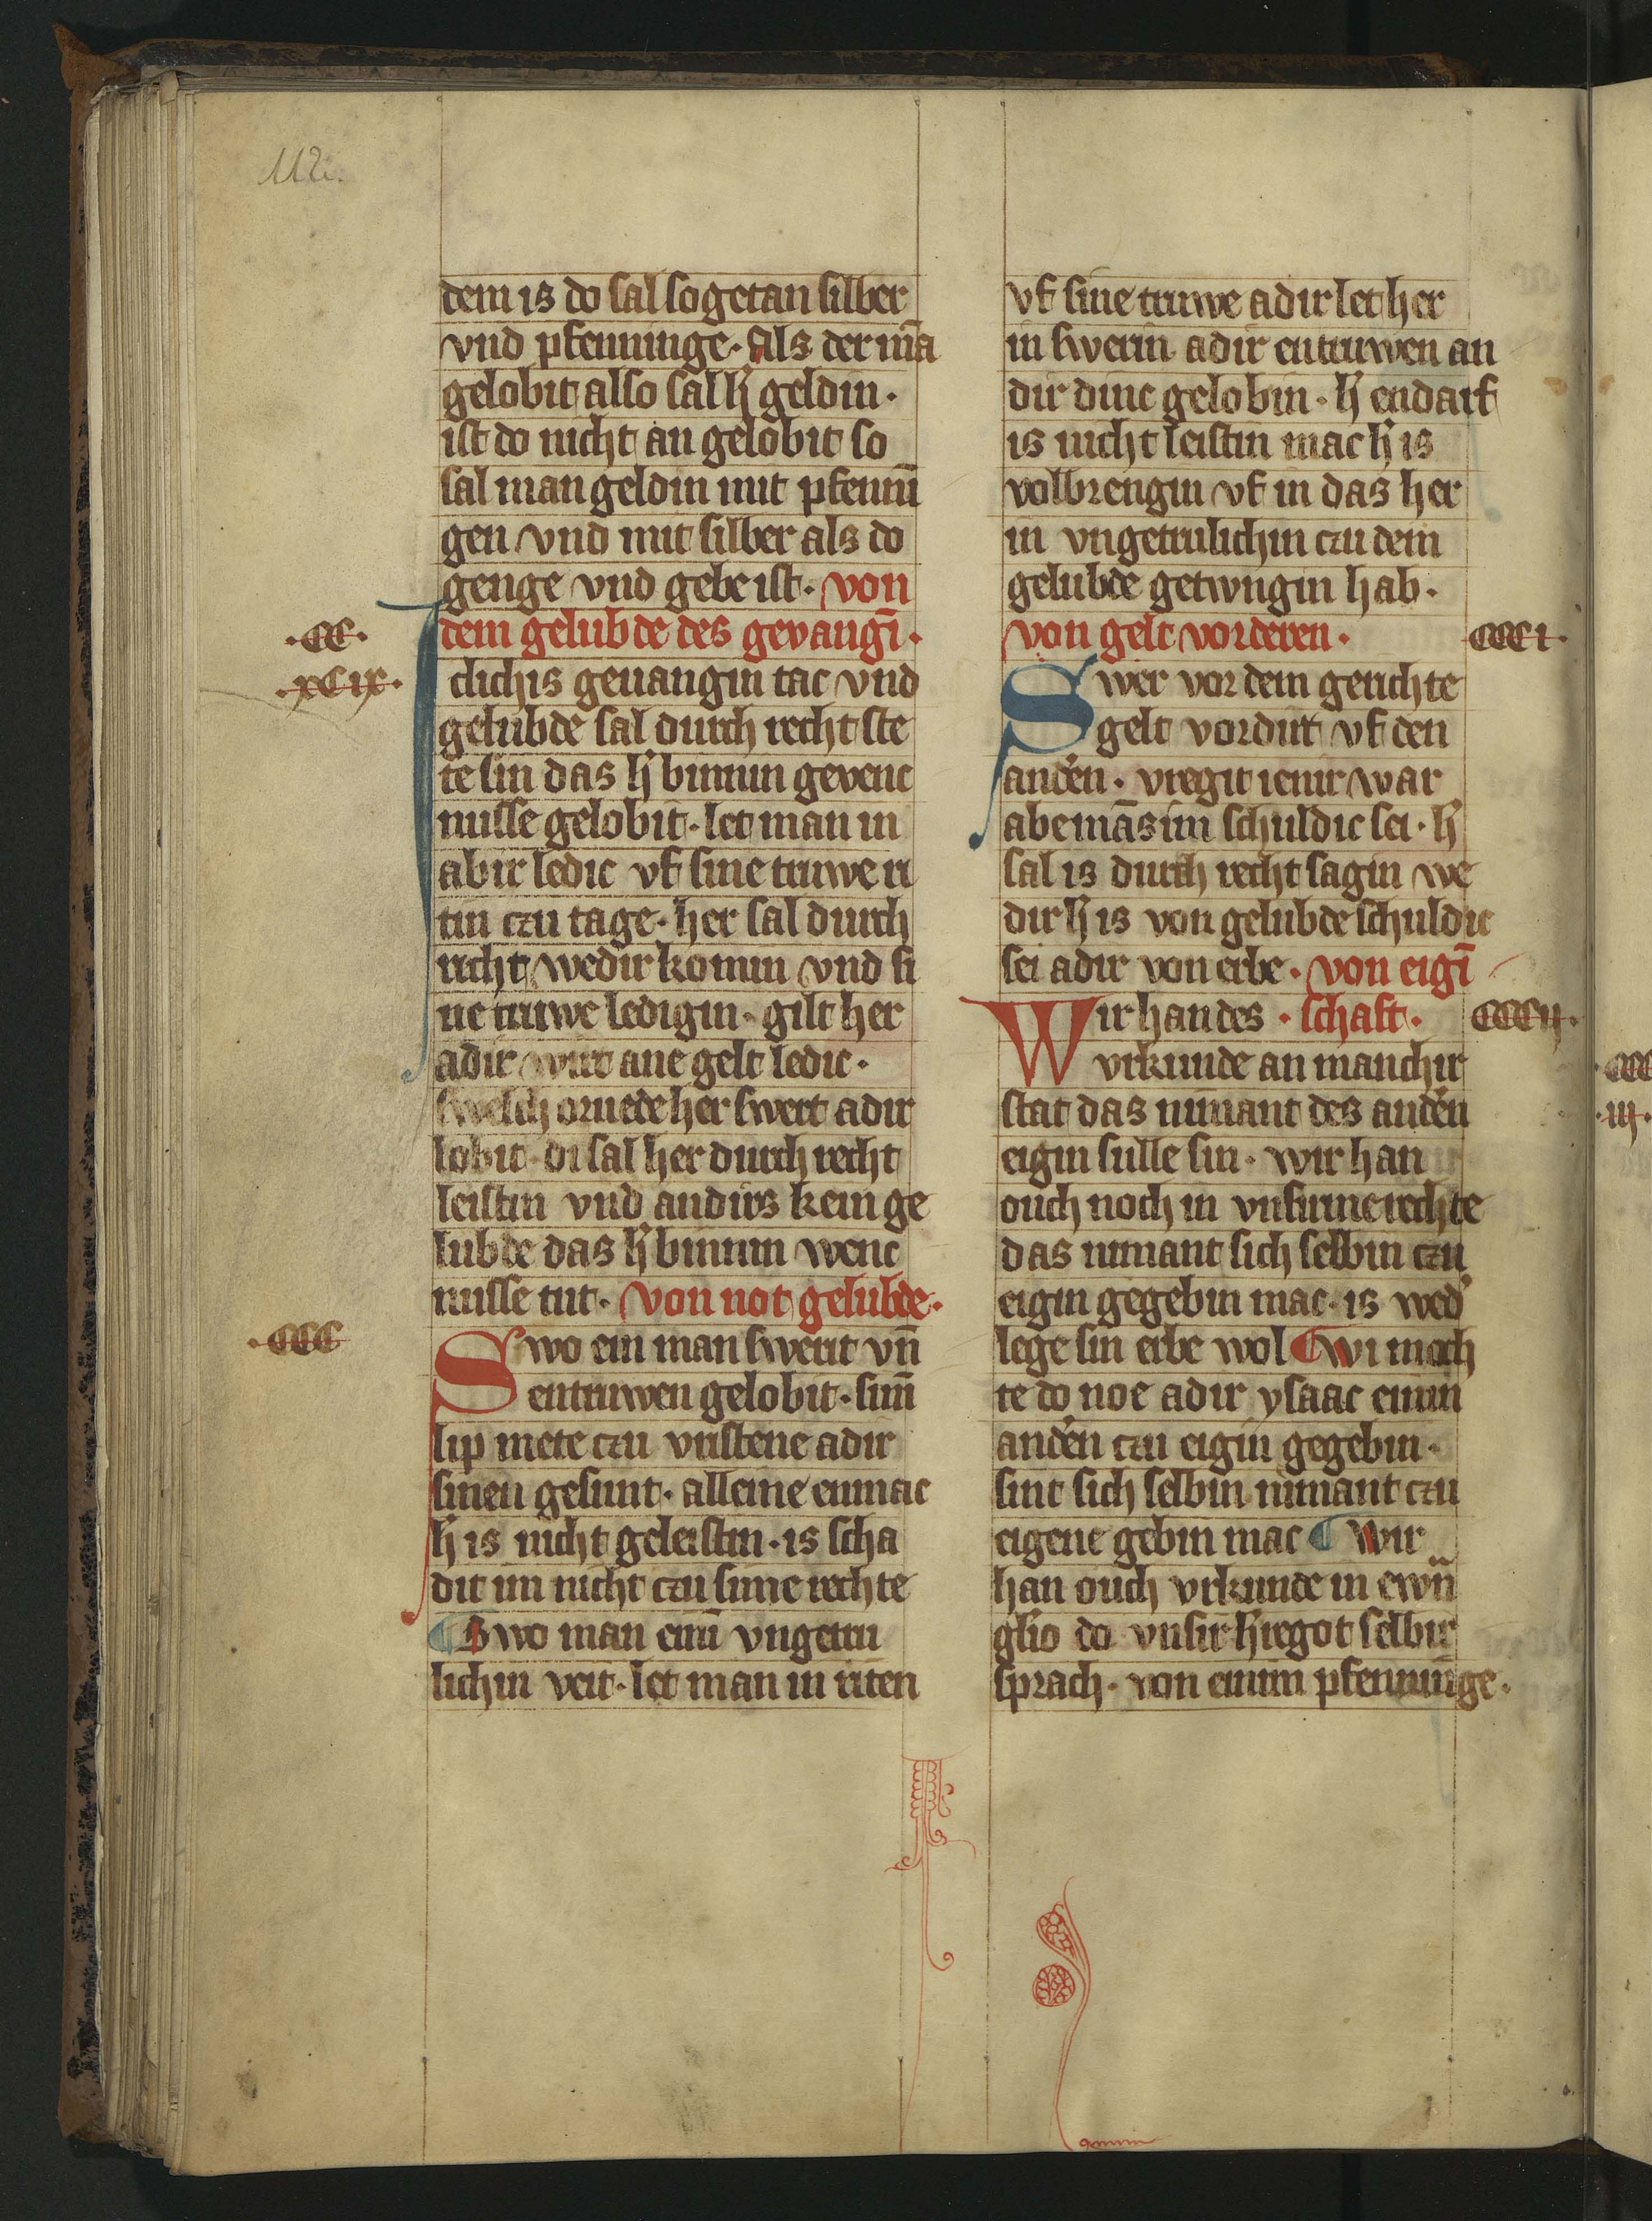 112.
dem is do sal sogetan silber
vnd pfenninge. Als der mā
gelobit also sal h̓ geldin.
ist do nicht an gelobit so
sal man geldin mit pfennī
gen vnd mit silber als do
genge vnd gebe ist. von
dem gelubde des gevangī.
.CC.
.xCix.
Iclichis geuangin tac vnd
gelubde sal durch recht ste
te sin das h̓ binnin gevenc
nisse gelobit. let man in
abir ledic vf sine truwe ri
tin czu tage. her sal durch
richt wedir komin vnd si
ne truwe ledigin. gilt her
adir wirt ane gelt ledic.
swelch oruede her swert adir
lobit. di sal her durch recht
leistin vnd andirs kein ge
lubde das h̓ binnin wenc
nisse tut. von not gelubde.
.CCC
Swo ein man swerit vn̄
entruwen gelobit. sinī
lip mete czu vristene adir
sinen gesunt. alleine enmac
h̓ is nicht geleistin. is scha
dit im nicht czu sime rechte
¶ Swo man einī vngetru
lichin veit. let man in riten
vf sine truwe adir let her
in swerin adir entruwen an
dir dinc gelobin. h̓ endarf
is nicht leistin mac h̓ is
volbrengin vf in das her
in vngetrulichin czu dem
gelubde getwngin hab.
von gelt vorderen.
CCCi.
Swer vor dem gerichte
gelt vordirt vf den
anden̓. vregit ienir war
abe mās im schuldic sei. h̓
sal is durch recht sagin we
dir h̓ is von gelubde schuldic
sei adir von erbe. von eigī
Wir han des . schaft.
CCCii.
vrkunde an manchir
stat das nimant des anden̓
eigin sulle sin. wir han
ouch noch in vnsirme rechte
das nimant sich selbin czu
eigin gegebin mac. is wed̓
lege sin erbe wol ¶ wi moch
te do noe adir ysaac einin
anden̓ czu eigin gegebin.
sint sich selbin nimant czu
eigene gebin mac ¶ Wir
han ouch vrkunde in ewn̄
glio do vnsir h̓re got selbir
sprach. von einim pfenninge.
CCC
.iii.